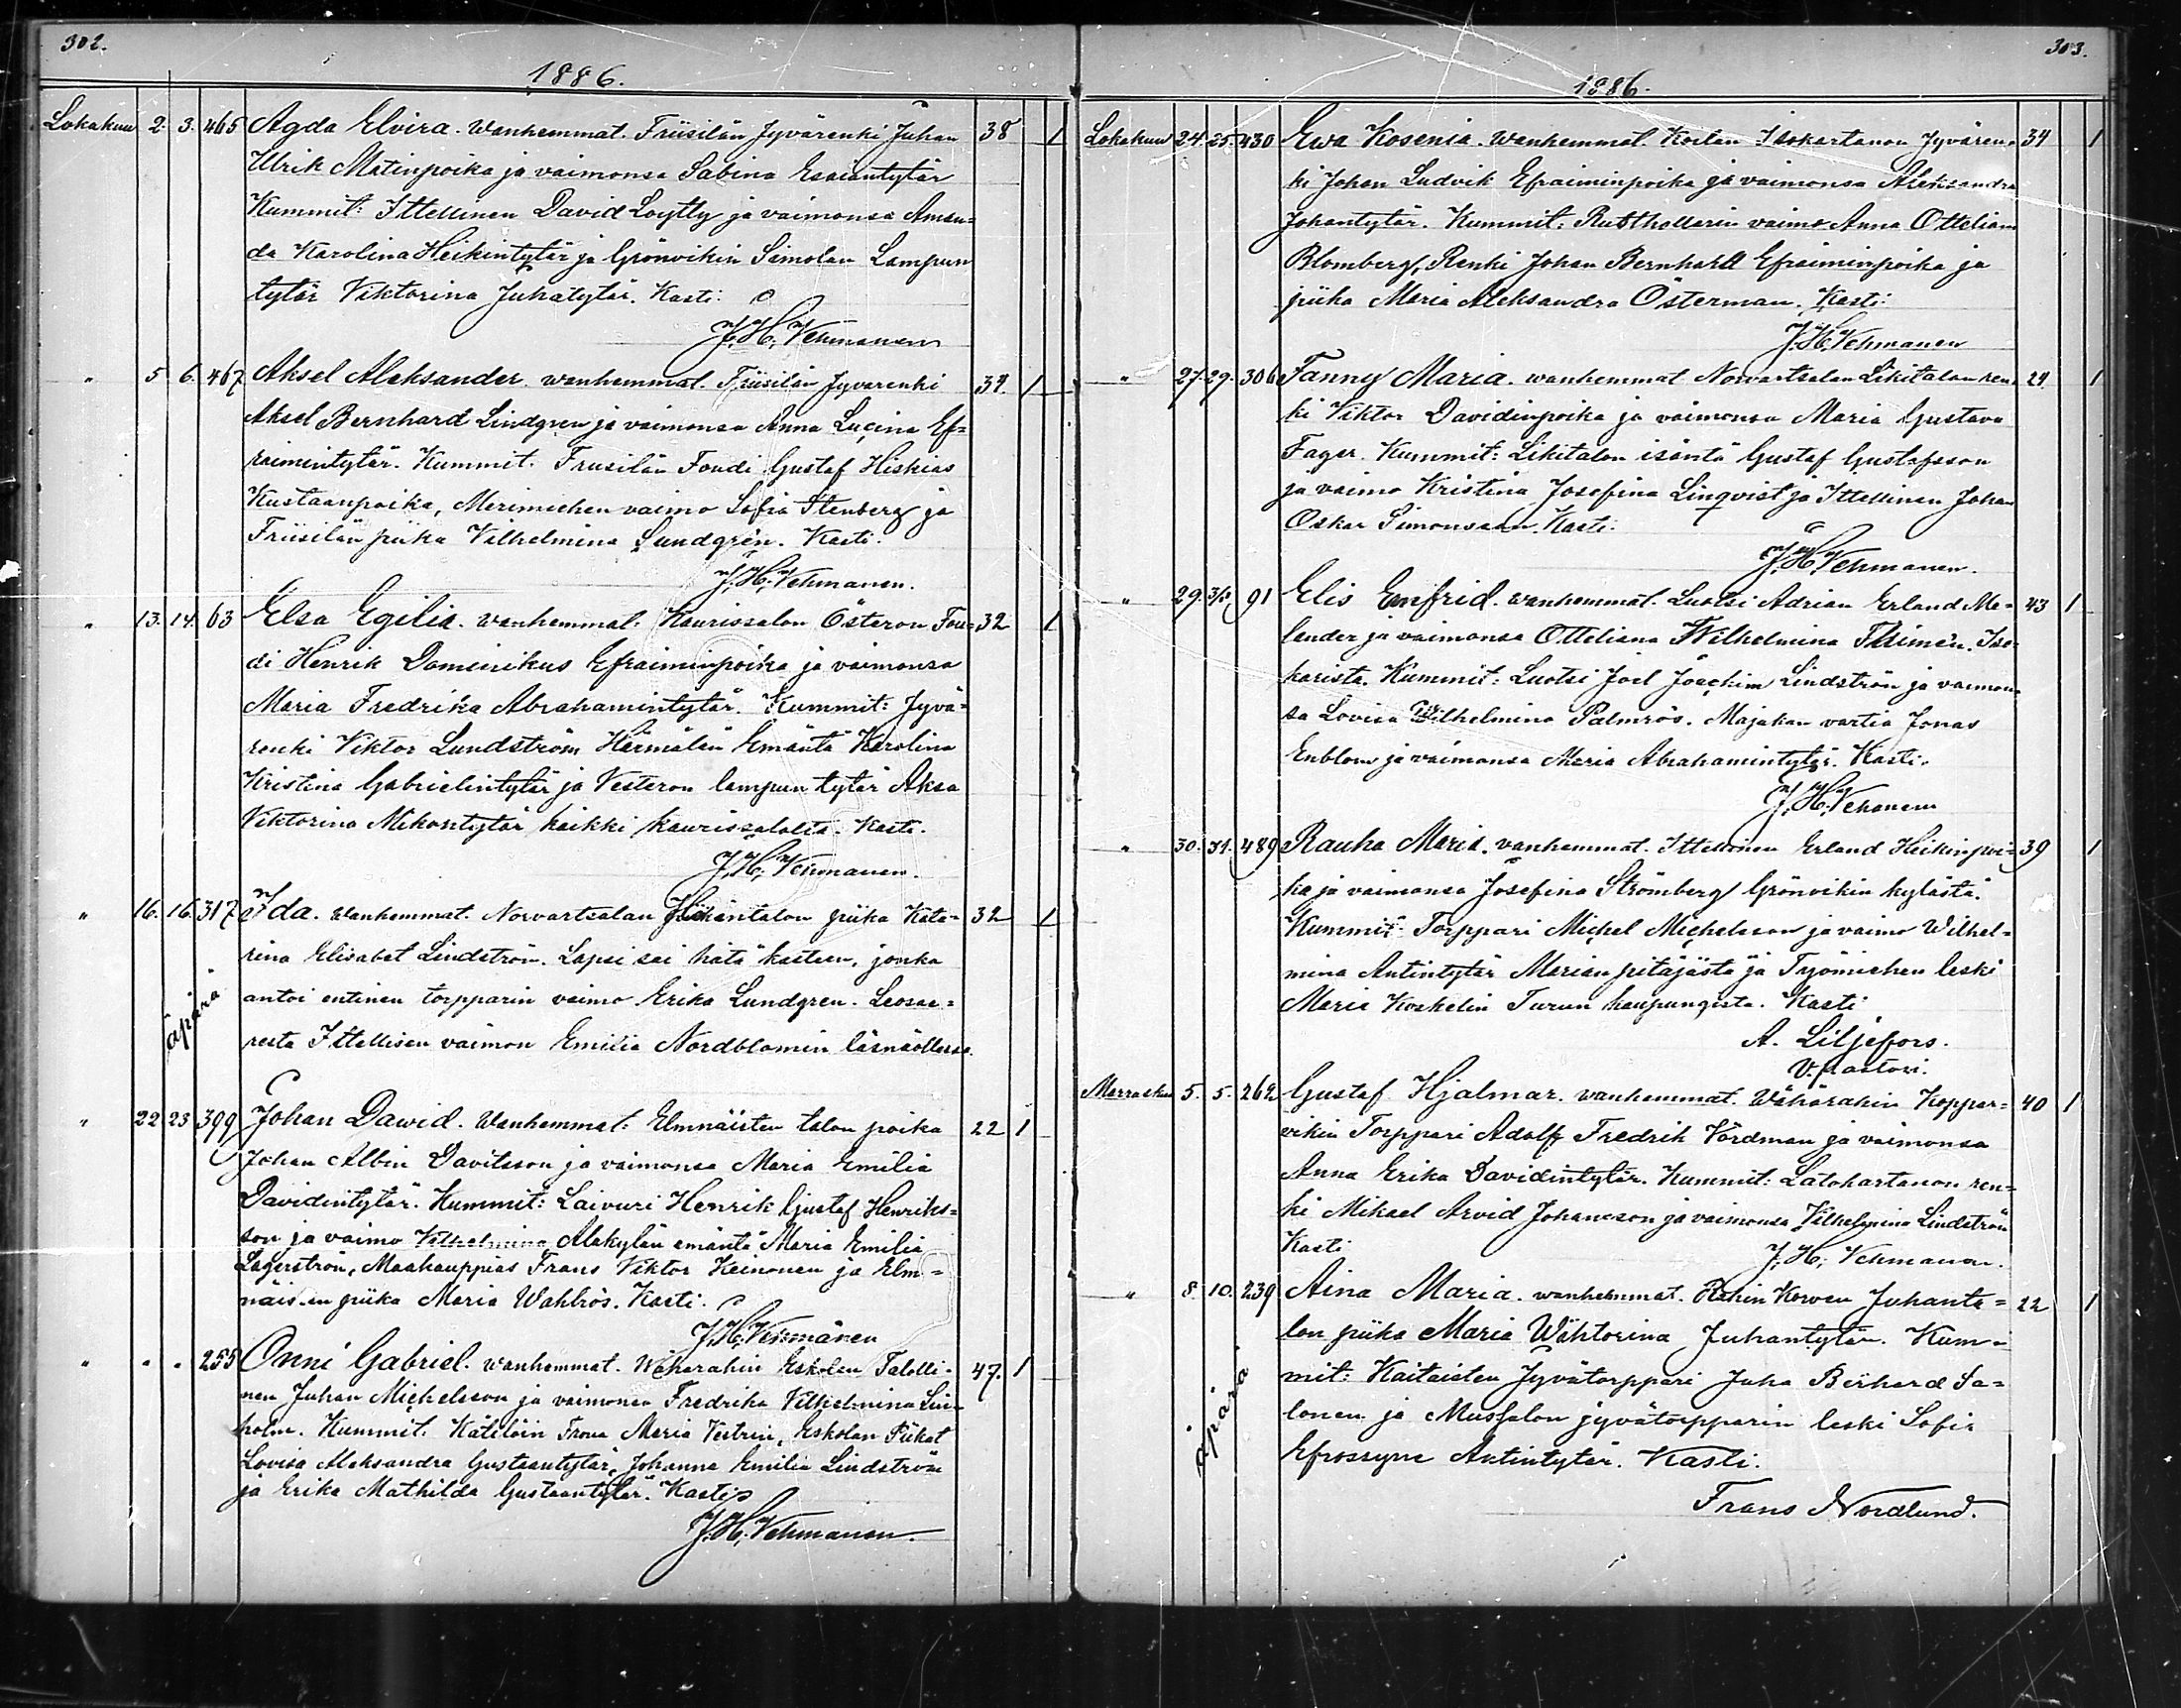 302.
1886.
Lokakuu 2. 3. 465 Agda Elvira. Wanhemmat. Friisilän Jyvärenki Juhan 38 1
Ulrik Matinpoika ja vaimonsa Sabina Esaiantytär
Kummit: Ittellinen David Löytty ja vaimonsa Aman=
da Karolina Heikintytär ja Grönvikin Simolan Lampun
tytär Viktorina Juhatytär. Kasti:
J. H. Vehmanen
" 5 6. 467 Aksel Aleksander. wanhemmat. Friisilän Jyvarenki 34. 1
Aksel Bernhard Lindgren ja vaimonsa Anna Lucina Ef=
raimintytär. Kummit. Friisilän Foudi Gustaf Hiskias
Kustaanpoika, Merimiehen vaimo Sofia Stenberg ja
Friisilän piika Vilhelmina Lundgrén. Kasti:
J. H. Vehmanen.
" 13. 14. 63 Elsa Egilia. wanhemmat. Kaurissalon Österon Fou= 32 1
di Henrik Dominikus Efraiminpoika ja vaimonsa
Maria Fredrika Abrahamintytär. Kummit: Jyvä=
renki Viktor Lundström Härmälän Emäntä Karolina
Kristina Gabrielintytär ja Vesteron lampun tytär Aksa
Viktorina Mikontytär kaikki kaurissalolta. Kasti.
J. H. Vehmanen.
" 16. 16. 317 Ida. wanhemmat. Norvartsalan talon piika Kata= 32 1
rina Elisabet Lindström. Lapsi sai hätä kasteen, jonka
äpärä antoi entinen torpparin vaimo Erika Lundgren. Leosaa=
resta Ittellisen vaimon Emilia Nordblomin läsnäollessa.
" 22 23 399 Johan Dawid. Wanhemmat. Elmnäisten talon poika 22 1
Johan Albin Davitsson ja vaimonsa Maria Emilia
Davidintytär. Kummit: Laivuri Henrik Gustaf Henriks=
son ja vaimo Vilhelmina Alakylän emäntä Maria Emilia
Lagerström, Maakauppias Frans Viktor Keinonen ja Elm=
näisten piika Maria Wahlrös. Kasti.
J. H. Vehmanen
" " " 255 Onni Gabriel. wanhemmat. Wäharahin Eskolan Talolli= 47. 1
nen Juhan Michelsson ja vaimonsa Fredrika Vilhelmina Lin=
holm. Kummit. Kätilöin Frova Maria Vestrin, Eskolan Piikat
Lovisa Aleksandra Gustaantytär, Johanna Emilia Lindström
ja Erika Mathilda Gustaantytär. Kasti
J. H. Vehmanen.
303.
1886.
Lokakuu 24. 25. 430 Ewa Kosenia. Wanhemmat. Koilan Isokartanon Jyvären= 34 1
ki Johan Ludvik Efraiminpoika ja vaimonsa Aleksandra
Johantytär. Kummit: Rusthollarin vaimo Anna Otteliana
Blomberg, Renki Johan Bernhard Efraiminpoika ja
piika Maria Aleksandra Österman. Kasti:
J. H. Vehmanen
" 27. 29. 306 Fanny Maria. wanhemmat Norvartsalan Likitalon ren= 24 1
ki Viktor Davidinpoika ja vaimonsa Maria Gustava
Fager. Kummit: Likitalon isäntä Gustaf Gustafsson
ja vaimo Kristina Josefina Linqvist ja Ittellinen Johan
Oskar Simonsson. Kasti:
J. H. Vehmanen.
" 29. 91 Elis Enfrid. wanhemmat. Luotsi Adrian Erland Me= 43 1
lander ja vaimonsa Otteliana Wilhelmina Isn=
karista. Kummit: Luotsi Joel Joachim Lindström ja vaimon=
sa Lovisa Wilhelmina Palmrós. Majakan vartia Jonas
Enblom ja vaimonsa Maria Abrahamintytär. Kasti.
J. H. Vehanen
" 30. 31. 489 Rauha Maria. vanhemmat. Ittellinen Erland Heikinpoi= 39 1
ka ja vaimonsa Josefina Strömberg Grönvikin kylästä.
Kummit. Torppari Michel Michelsson ja vaimo Wilhel=
mina Antintytär Marian pitäjästä ja Työmiehen leski
Maria Koskelin Turun kaupungista. Kasti
A. Liljefors.
V. pastori.
Marraskuu 5. 5. 262 Gustaf Hjalmar. wanhemmat. Wähärahin Koppar= 40 1
vikin Torppari Adolf Fredrik Vördman ja vaimonsa
Anna Erika Davidintytär. Kummit: Latokartanon ren=
ki Mikael Arvid Johansson ja vaimonsa Vilhelmina Lindström
Kasti
J. H. Vehmanen.
" 8. 10. 239 Aina Maria. wanhemmat. Rahin Korven Juhanta= 22 1
lon piika Maria Wihtorina Juhantytär. Kum=
äpärä mit: Kaitaisten Jyvätorppari Juha Bernhard Sa=
lonen ja Mussalon jyvätorpparin leski Sofia
Efrossyne Antintytär. Kasti.
Frans Nordlund.